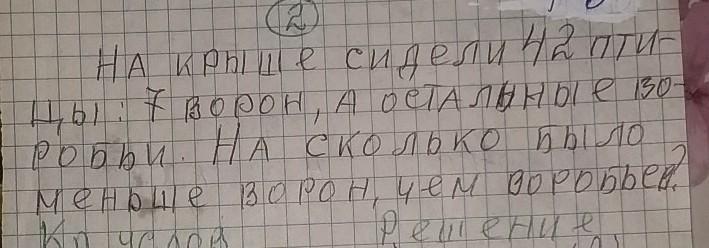 2
На крыше сидели 42 пти-
цы: 7 ворон, а остальные во-
робьи. На сколько было
меньше ворон, чем воробьев?
Решение